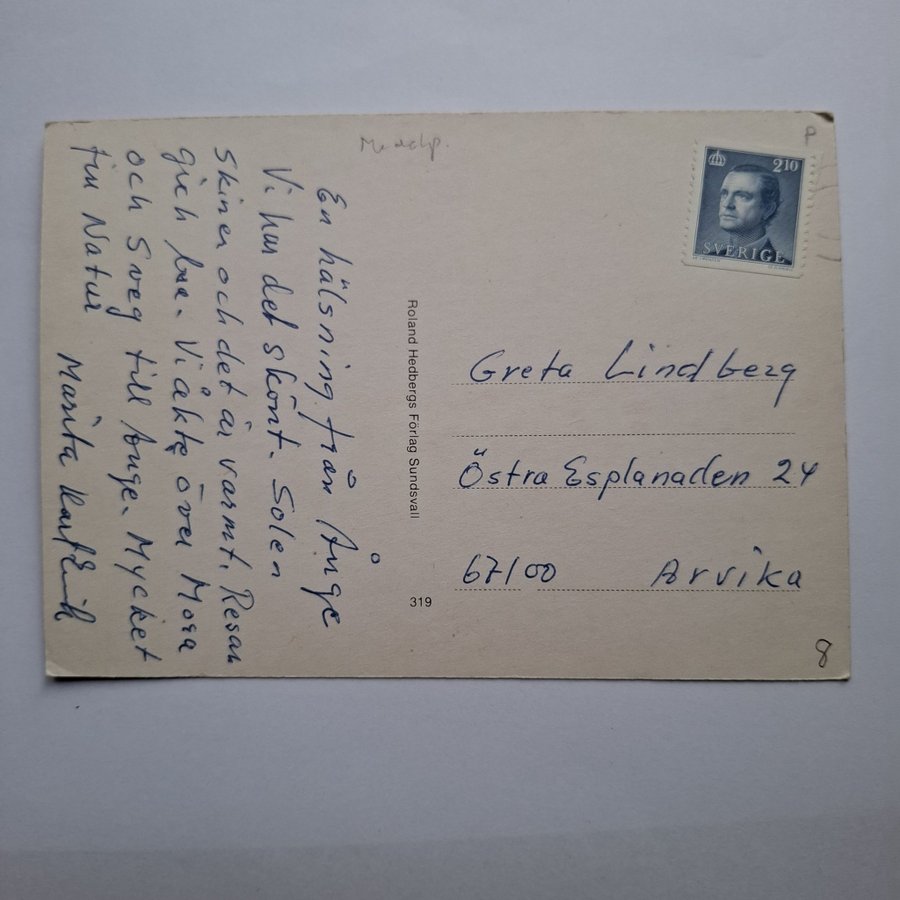 Meddp.
En hälsning från Ånge
Vi har det skönt. Solen
skiner och det är varmt. Resan
gick bra. Vi åkte över Mora
och Sveg till Ånge. Mycket
fin Natur
Marita Karl Erik
Roland Hedbergs Förlag Sundsvall
319
P
2 10
SVERIGE
Greta Lindberg
Östra Esplanaden 24
67100 Arvika
8